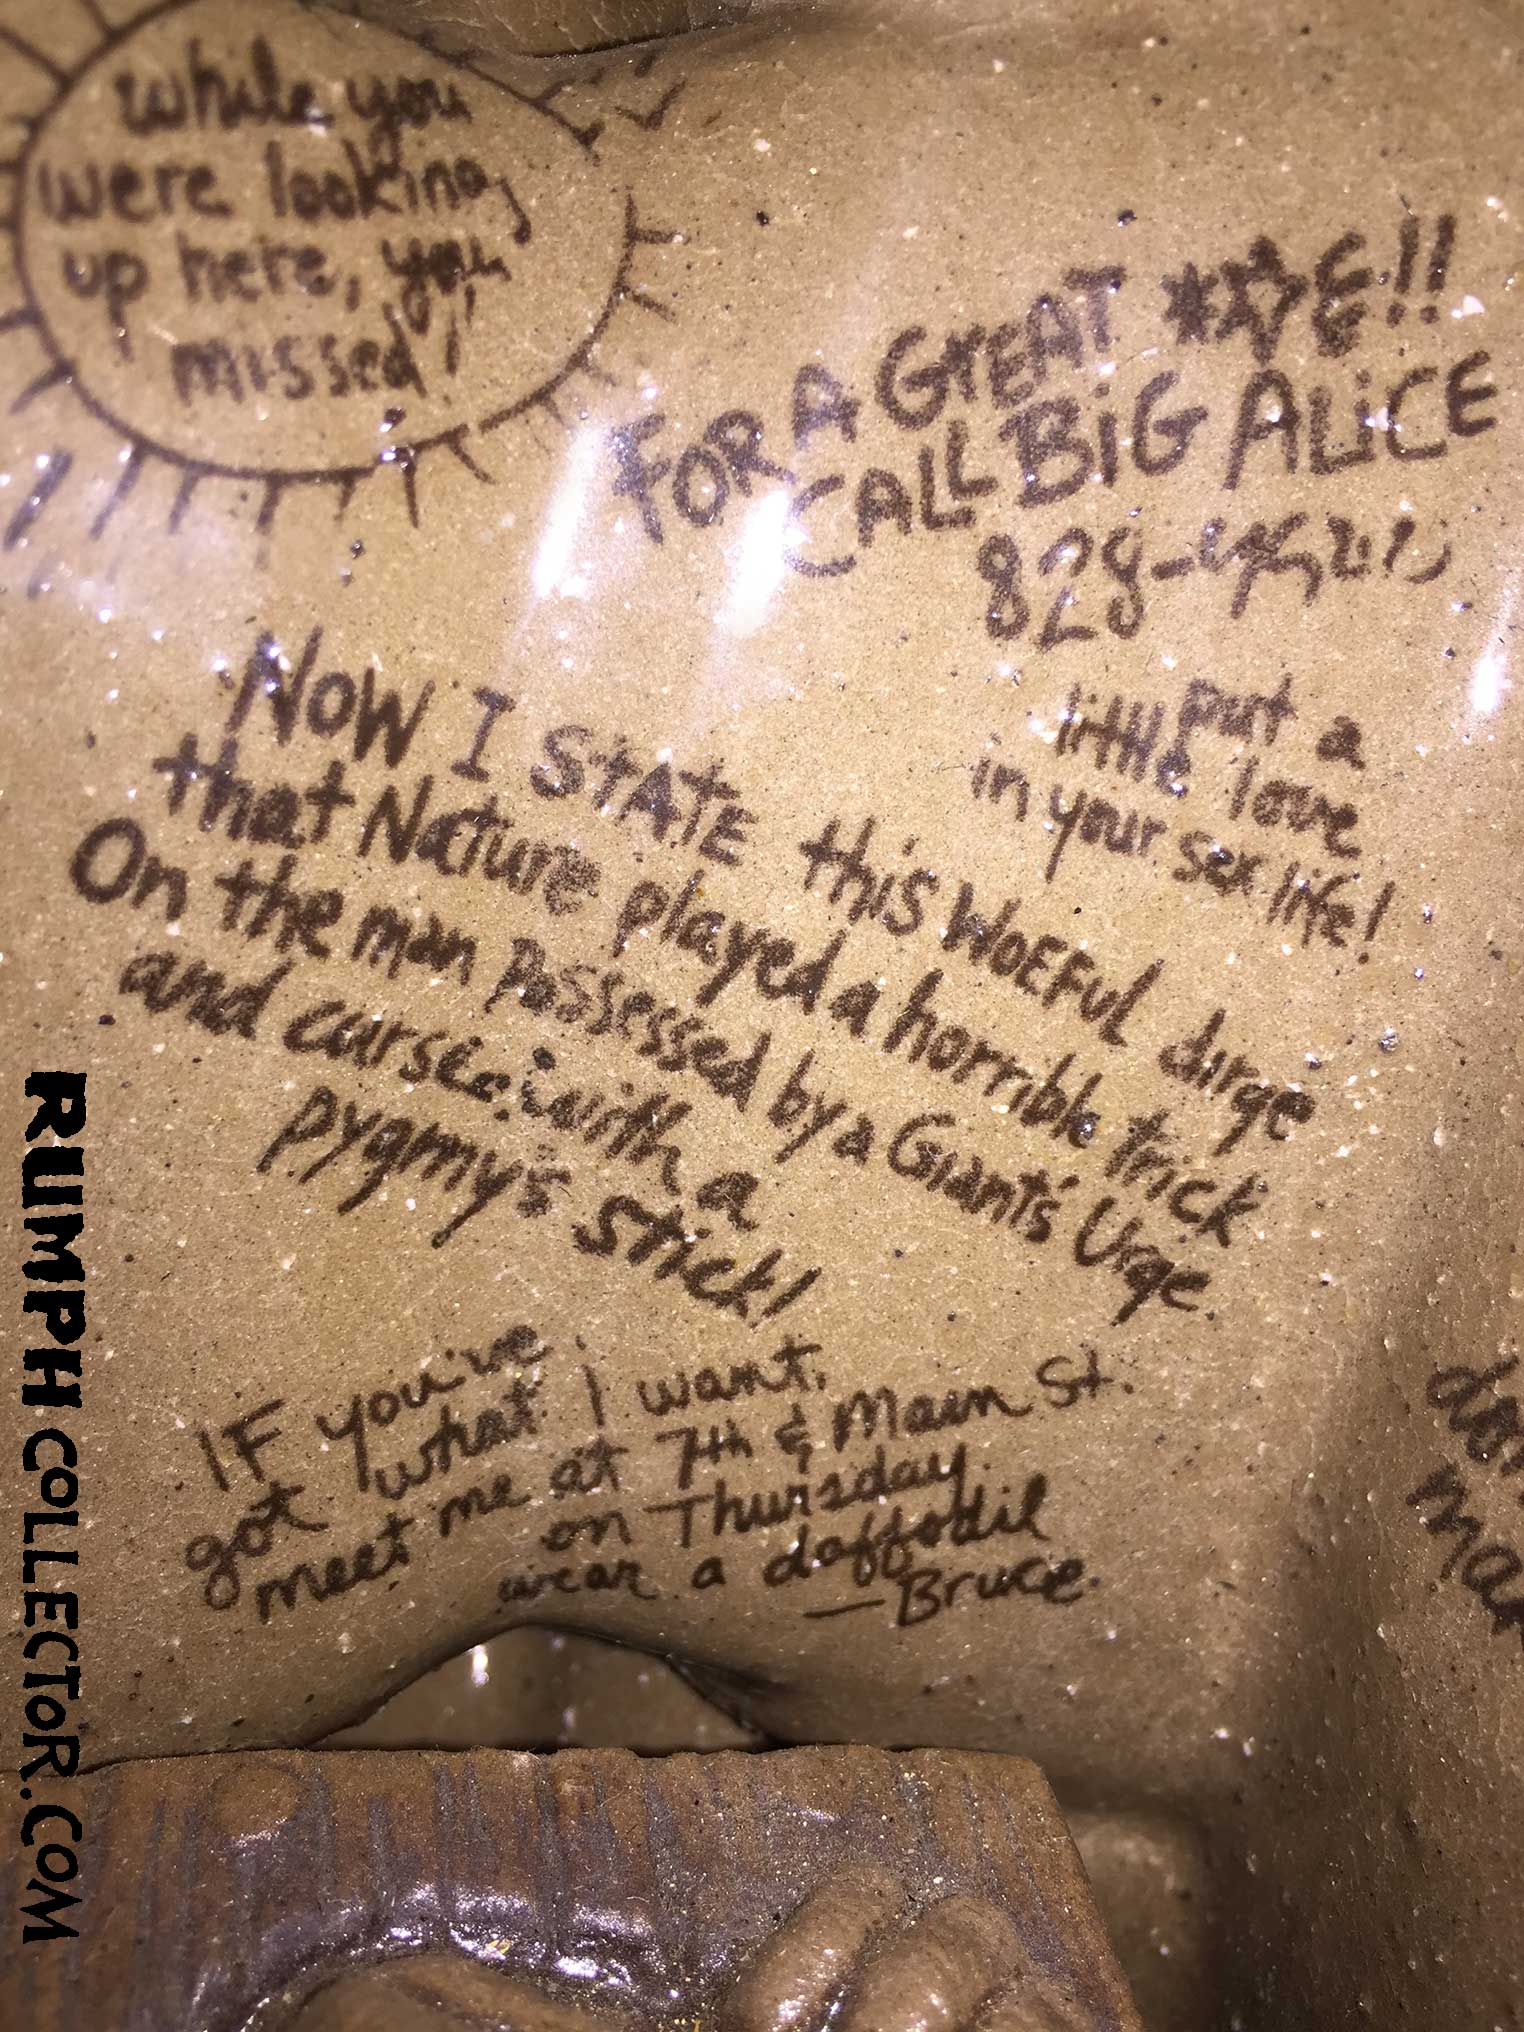 while you
were looking
up here, you
missed!
FOR A GREAT ***E!!
CALL BiG ALiCE
828-
put a
little love
in your sex life!
NOW I STATE this WOEFul dirge
that Nature played a horrible trick
On the man possessed by a Giant's Urge
and curse with a
pygmy's stick!
IF you've
got what I want,
meet me at 7th & Main St.
on Thursday
wear a daffodil
—Bruce.
RUMPH COLLECTOR.COM